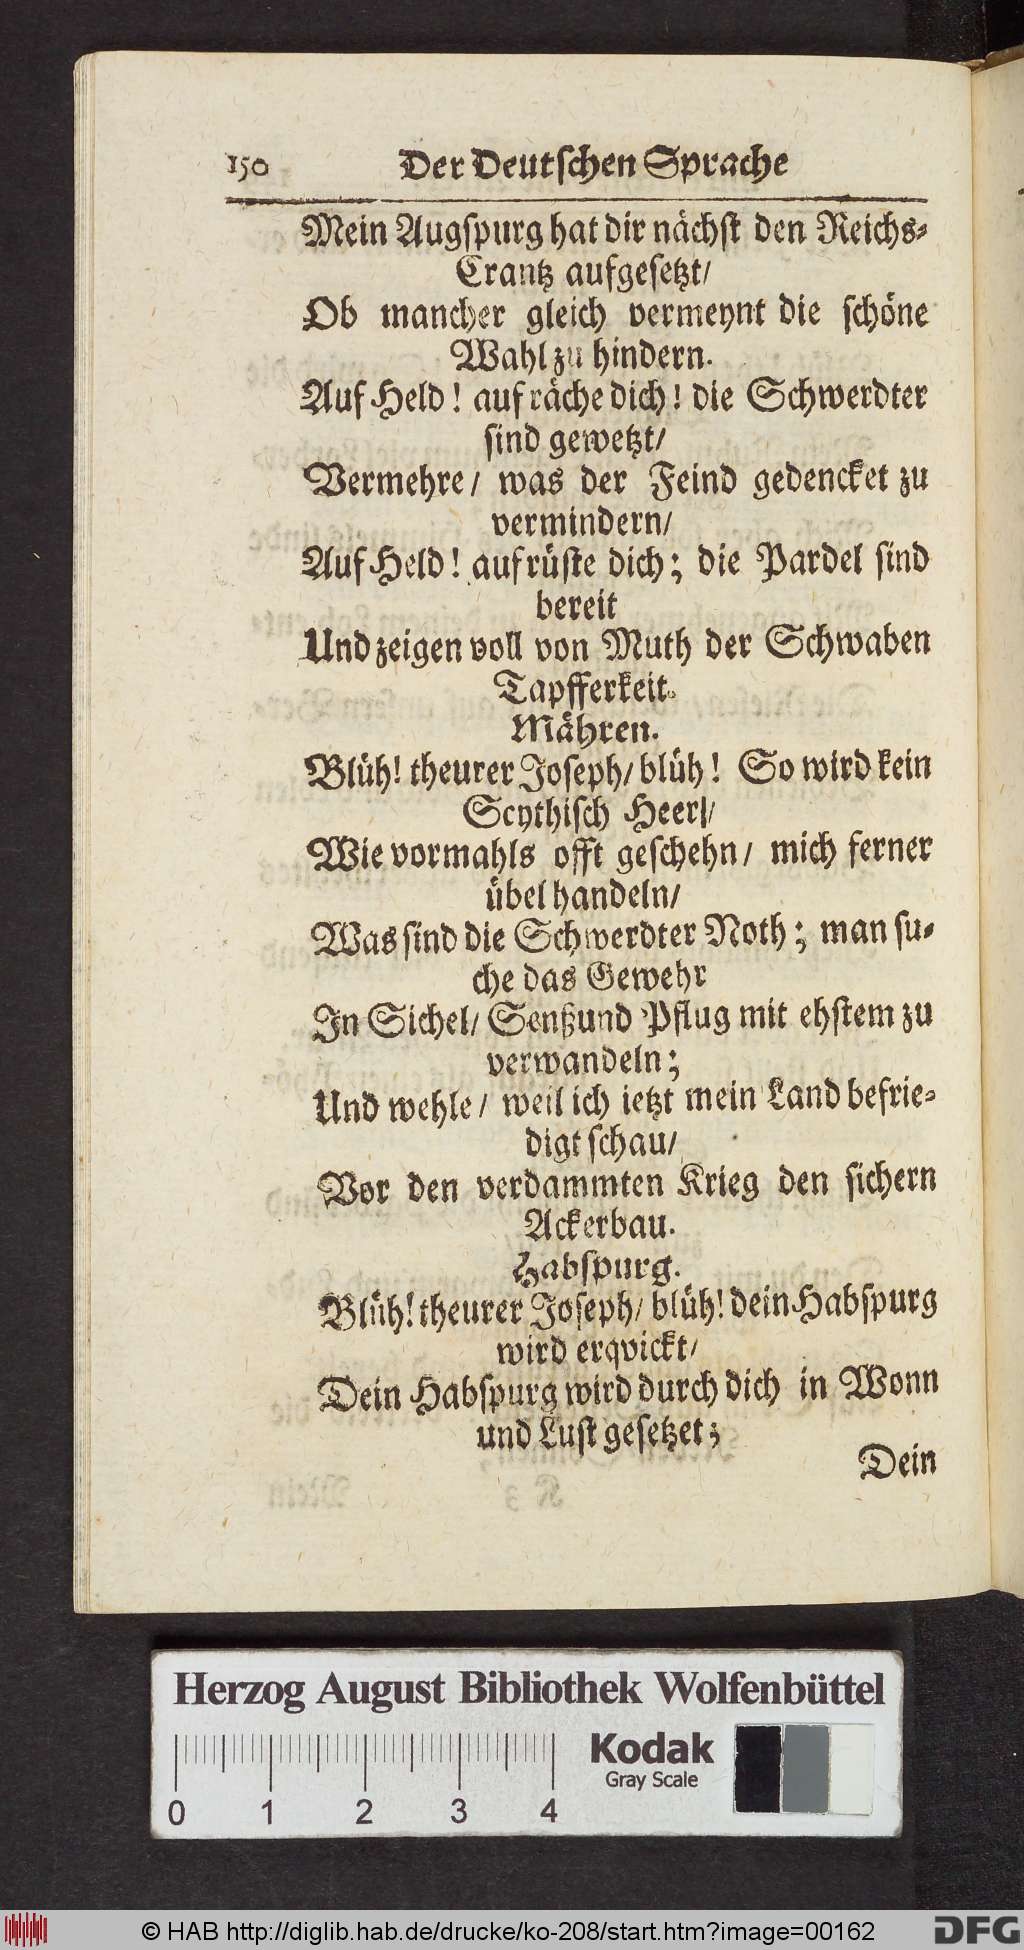 150 Der Deutschen Sprache
Mein Augspurg hat dir nächst den Reichs-
Crantz aufgesetzt/
Ob mancher gleich vermeynt die schöne
Wahl zu hindern.
Auf Held! auf räche dich! die Schwerdter
sind gewetzt/
Vermehre/ was der Feind gedencket zu
vermindern/
Auf Held! auf rüste dich; die Pardel sind
bereit
Und zeigen voll von Muth der Schwaben
Tapfferkeit.
Mähren.
Blüh! theurer Joseph/ blüh! So wird kein
Scythisch Heer/
Wie vormahls offt geschehn/ mich ferner
übel handeln/
Was sind die Schwerdter Noth; man su-
che das Gewehr
In Sichel/ Senß und Pflug mit ehstem zu
verwandeln;
Und wehle/ weil ich ietzt mein Land befrie-
digt schau/
Vor den verdammten Krieg den sichern
Ackerbau.
Habspurg.
Blüh! theurer Joseph/ blüh! dein Habspurg
wird erqvickt/
Dein Habspurg wird durch dich in Wonn
und Lust gesetzet;
Dein
Herzog August Bibliothek Wolfenbüttel
Kodak
Gray Scale
0 1 2 3 4
© HAB http://diglib.hab.de/drucke/ko-208/start.htm?image=00162
DFG